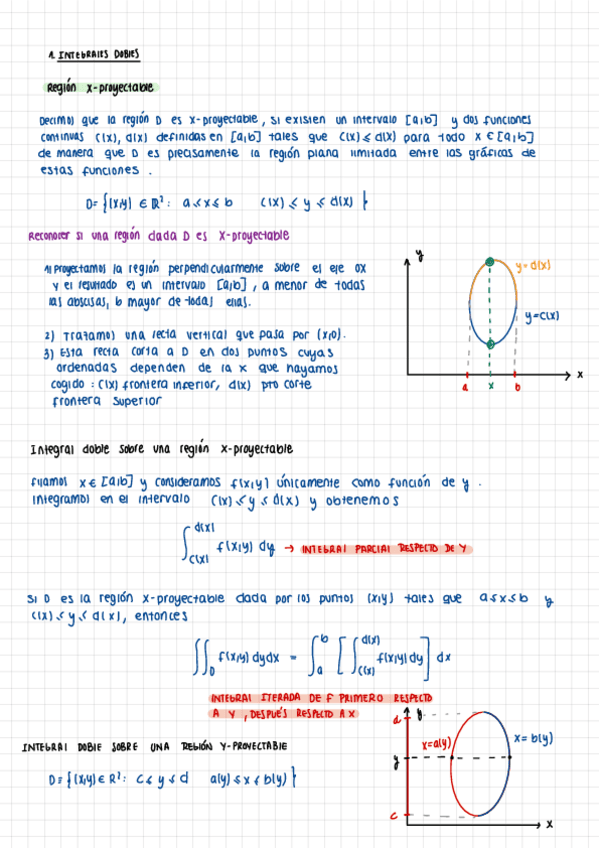 1. INTEGRALES DOBLES
Región x-proyectable
Decimos que la región D es x-proyectable, si existen un intervalo [a,b] y dos funciones
continuas c(x), d(x) definidas en [a,b] tales que c(x) ≤ d(x) para todo x ∈ [a,b]
de manera que D es precisamente la región plana limitada entre las gráficas de
estas funciones.
D = {(x,y) ∈ ℝ²: a ≤ x ≤ b c(x) ≤ y ≤ d(x)}
Reconocer si una región dada D es x-proyectable
1) Proyectamos la región perpendicularmente sobre el eje OX
y el resultado es un intervalo [a,b], a menor de todas
las abscisas, b mayor de todas ellas.
2) Trazamos una recta vertical que pasa por (x,0).
3) Esta recta corta a D en dos puntos cuyas
ordenadas dependen de la x que hayamos
cogido: c(x) frontera inferior, d(x) pto corte
frontera superior
y
y=d(x)
y=c(x)
a x b
x
Integral doble sobre una región x-proyectable
Fijamos x ∈ [a,b] y consideramos f(x,y) únicamente como función de y.
Integramos en el intervalo c(x) ≤ y ≤ d(x) y obtenemos
∫_{c(x)}^{d(x)} f(x,y) dy → INTEGRAL PARCIAL RESPECTO DE Y
Si D es la región x-proyectable dada por los puntos (x,y) tales que a ≤ x ≤ b y
c(x) ≤ y ≤ d(x), entonces
∬_D f(x,y) dydx = ∫_a^b [∫_{c(x)}^{d(x)} f(x,y) dy] dx
INTEGRAL ITERADA DE F PRIMERO RESPECTO
A Y, DESPUÉS RESPECTO A X
INTEGRAL DOBLE SOBRE UNA REGIÓN Y-PROYECTABLE
D = {(x,y) ∈ ℝ²: c ≤ y ≤ d a(y) ≤ x ≤ b(y)}
d y
x=a(y) x=b(y)
y
c
x